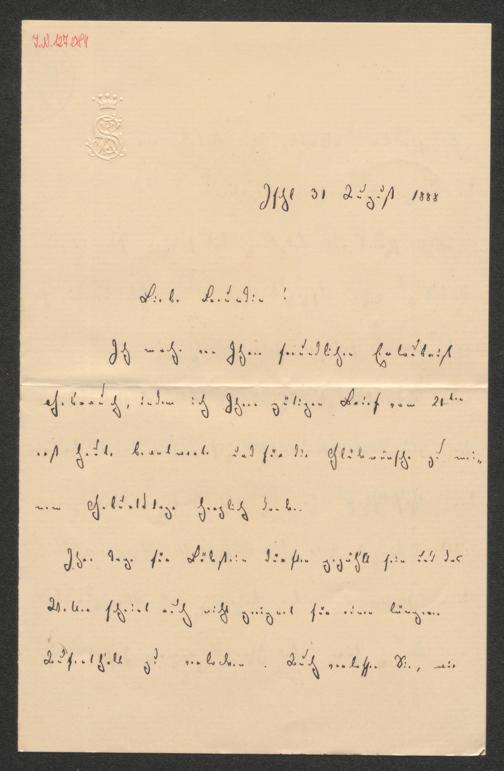 I.N. 127.084
Ischl 31 August 1888
Liebe Freundin!
Ich mache von Ihrer freundlichen Erlaubniß
Gebrauch, indem ich Ihren gütigen Brief vom 21ten
erst heute beantworte und für die Glückwünsche zu mei-
nem Geburtstage herzlich danke.
Ihre Tage für dürften gezählt sein und das
Wetter scheint auch nicht geeignet für einen längeren
Aufenthalt zu verlocken. Auch verlassen Sie, wie